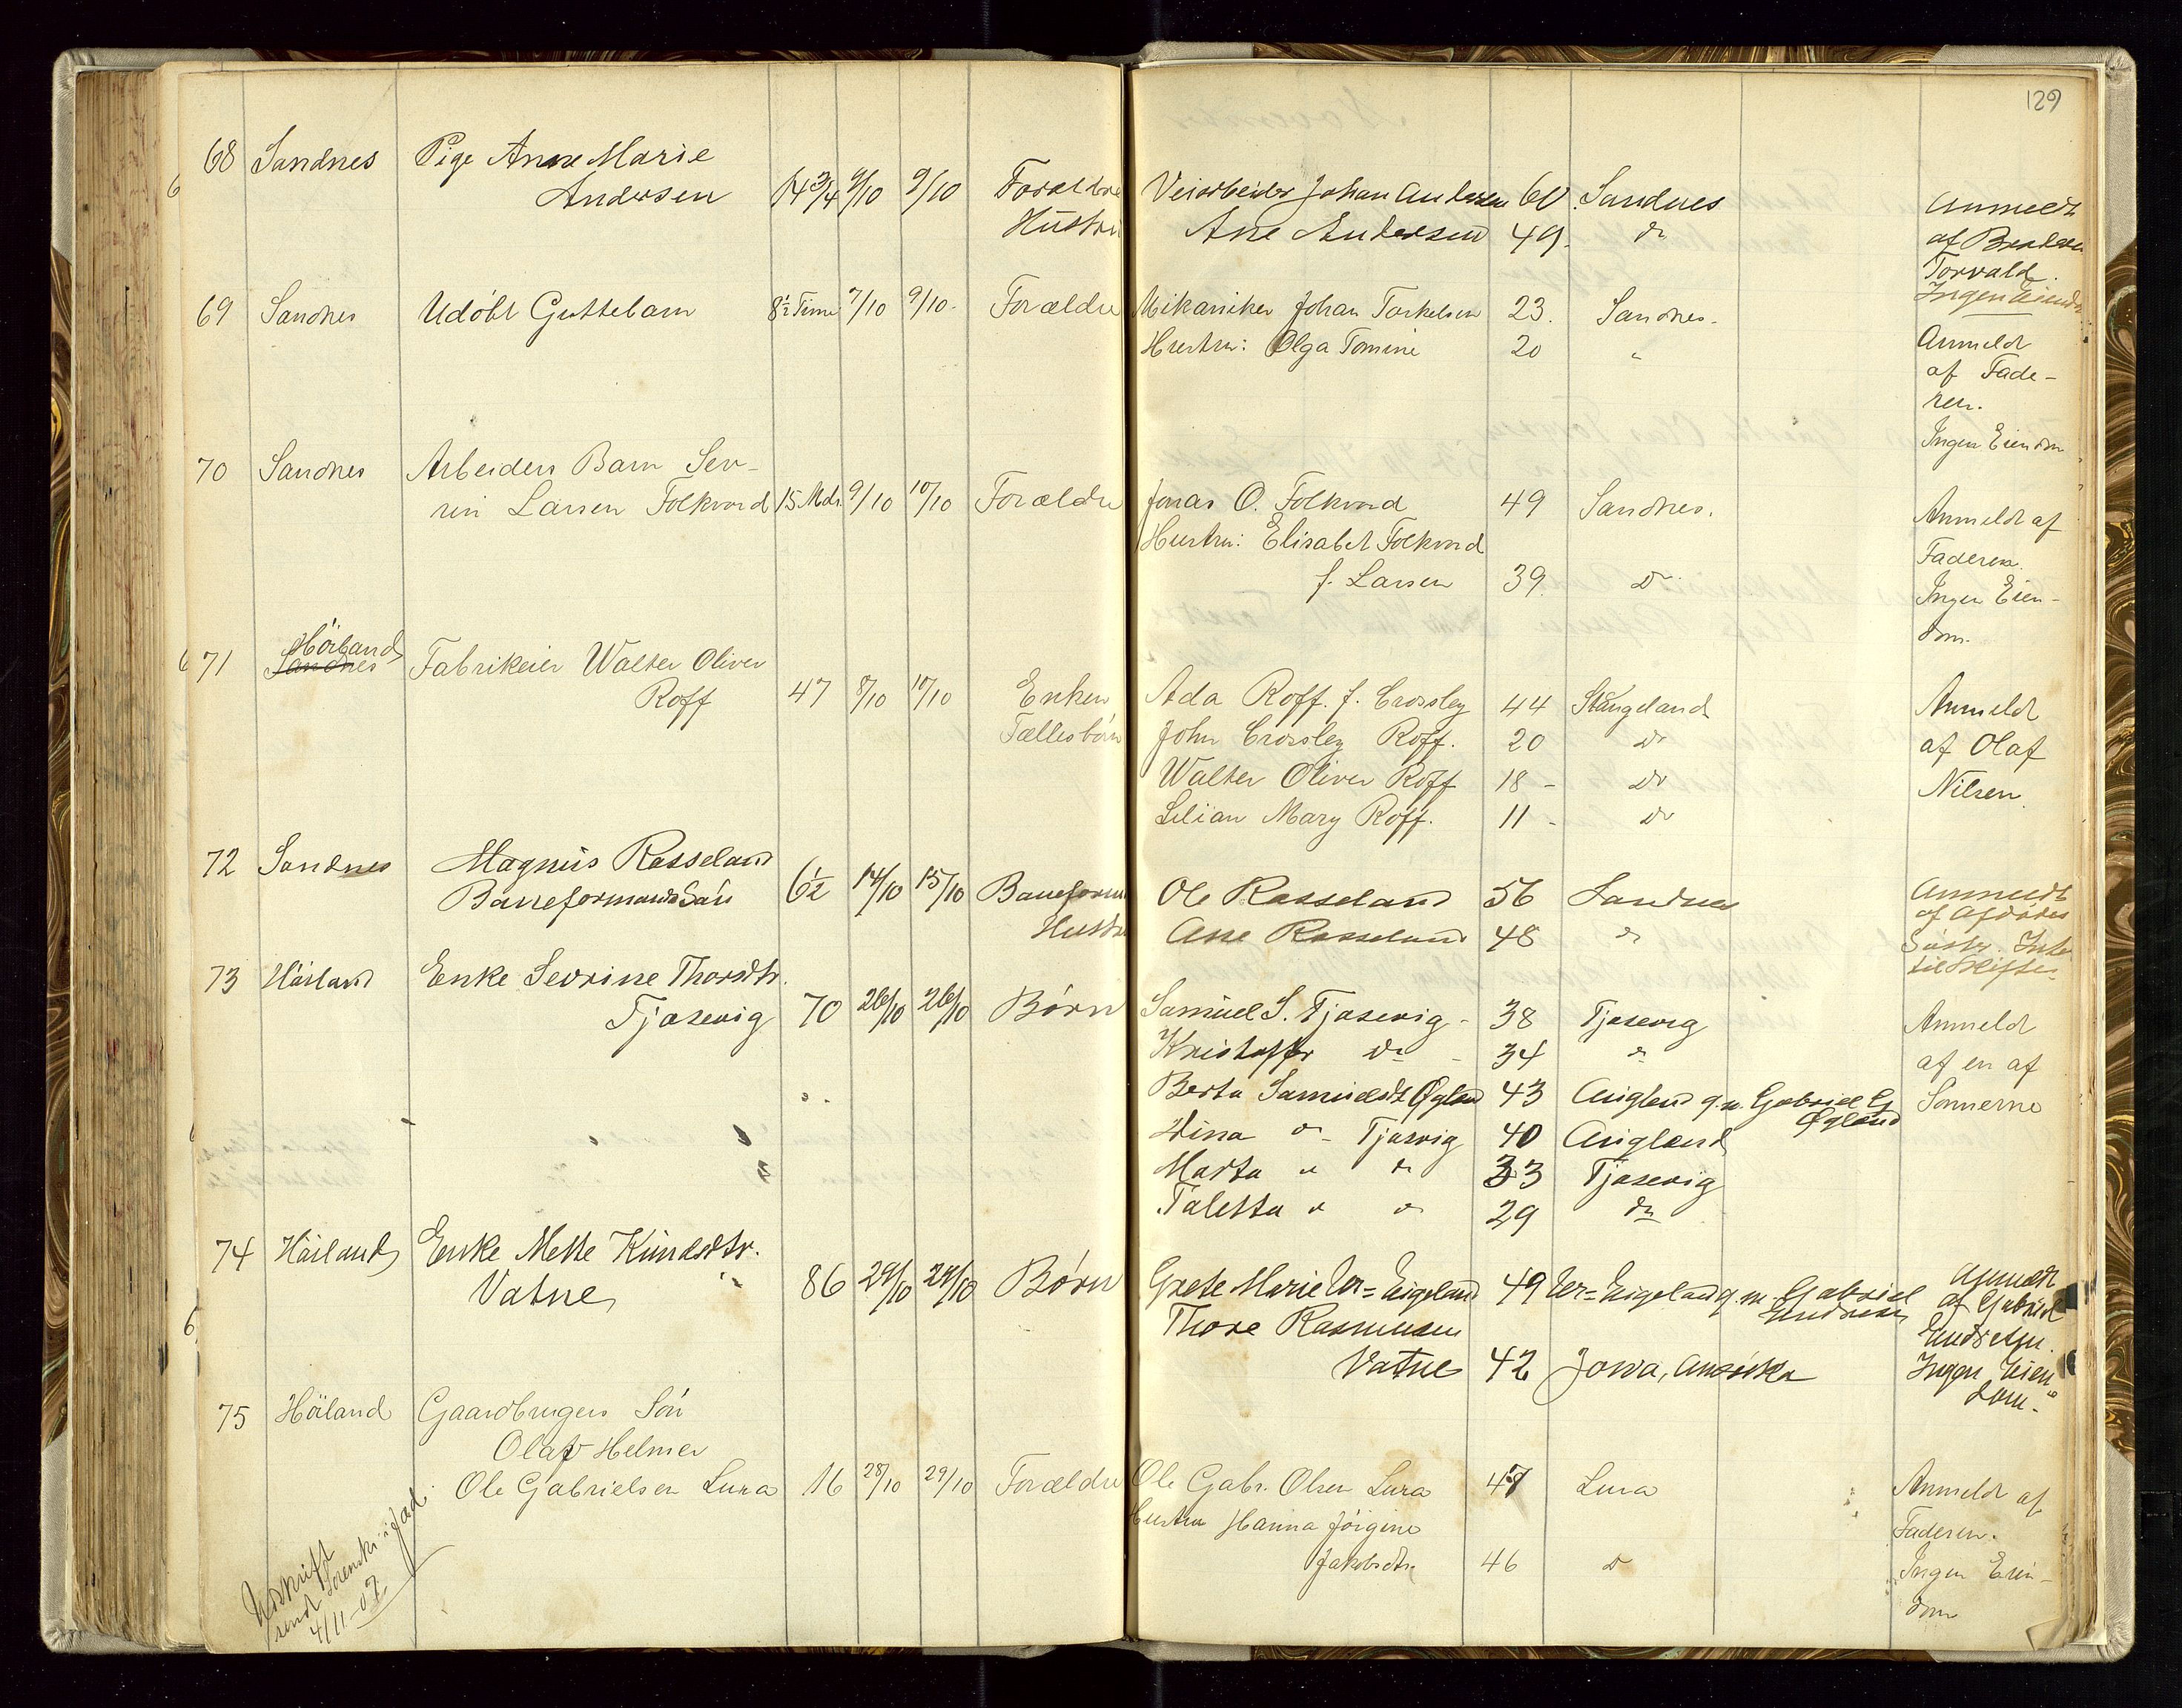 129
68 Sandnes Pige Anne Marie
Andersen 14 3/4 9/10 9/10 Forældre Veiarbeider Johan Andersen 60. Sandnes
Hustru Ane Andersen 49. do
Anmeldt
af Broderen
Torvald.
Ingen Eiendom
69 Sandnes Udöbt Guttebarn 8½ Time 7/10 9/10. Forældre Mikaniker Johan Torkelsen 23. Sandnes.
Hustru: Olga Tomine 20 "
Anmeldt
af Fade-
ren.
Ingen Eiendom
70 Sandnes Arbeiders Barn Sev-
rin Larsen Folkvord 15 Mdr. 9/10 10/10 Forældre Jonas O. Folkvord 49 Sandnes.
Hustru: Elisabet Folkvord
f. Larsen 39. do
Anmeldt af
Faderen.
Ingen Eien-
dom.
Höiland
71 Sandnes Fabrikeier Walter Oliver
Roff 47 8/10 10/10 Enken Ada Roff. f. Crossley 44 Stangeland
Fællesbörn John Crossley Roff. 20 do
Walter Oliver Roff 18 - do
Lilian Mary Roff. 11 - do
Anmeldt
af Olaf
Nilsen.
72 Sandnes Magnus Rosseland
Baneformands Sön 6½ 14/10 15/10 Baneform. Ole Rosseland 56 Sandnes
Hustru Ane Rosseland 48 do
Anmeldt
af Afdödes
Söster. Intet
til Skifte.
73 Höiland Enke Sevrine Thorsdtr.
Tjosevig 70 26/10 26/10 Börn Samuel S. Tjosevig - 38 Tjosevig
Kristoffer do - 34 do
Berta Samuelsdt Øgland 43 Austgland g.m. Gabriel G
Øgland
Stina do Tjosvig 40
Marta " do 33 Tjosevig
Taletta " do 29 do
Anmeldt
af en af
Sönnerne
74 Höiland Enke Mette Knudsdtr.
Vatne 86 24/10 24/10 Börn Grete Marie Eigeland 49 Eigeland g.m. Gabriel
Endresen
Thore Rasmussen
Vatne 42 Jowa, Amerika
Anmeldt
af Gabriel
Endresen.
Ingen Eien-
dom.
75 Höiland Gaardbrugers Sön
Olaf Helmer
Ole Gabrielsen Lura 16 28/10 29/10 Forældre Ole Gabr. Olsen Lura 47 Lura
Hustru Hanna Jörgine
Jakobsdtr. 46 do
Anmeldt af
Faderen.
Ingen Eien-
dom
Udskrift
sendt Sorenskr. i Jæd.
4/11-07.